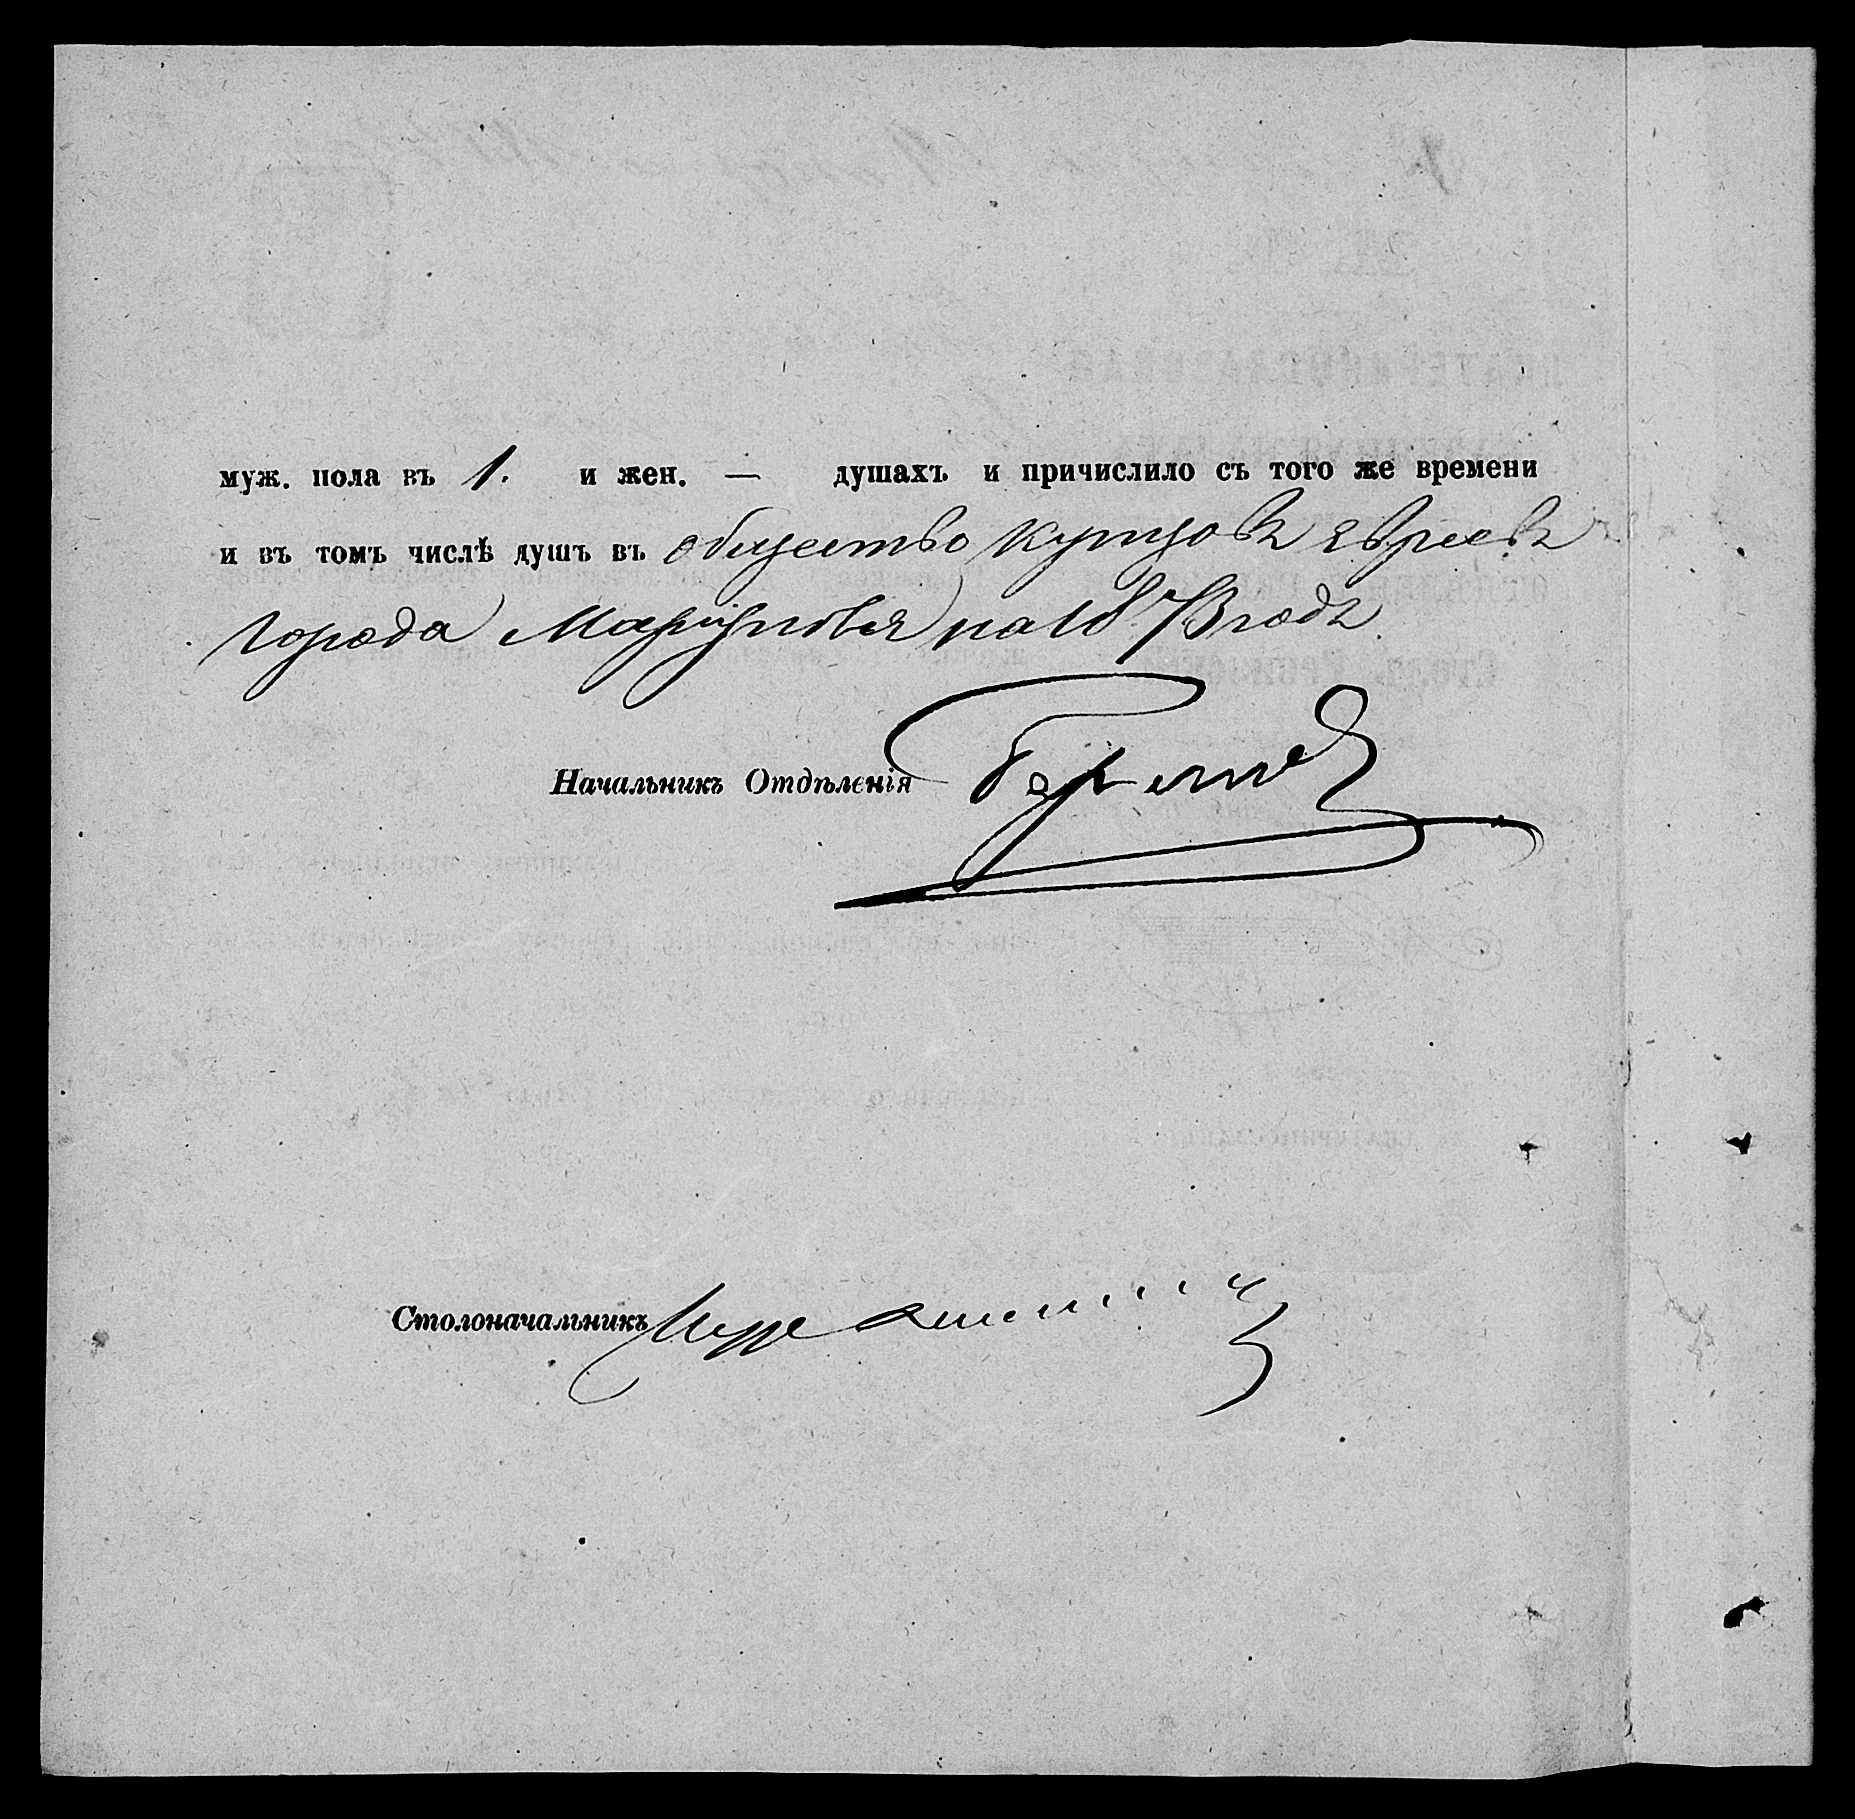 муж. пола въ 1. и жен. — душахъ и причислило съ того же времени
и въ томъ числѣ душъ въ общество купцовъ евреевъ
города Маріуполя на 1873 годъ.
Начальникъ Отдѣленія
Столоначальникъ